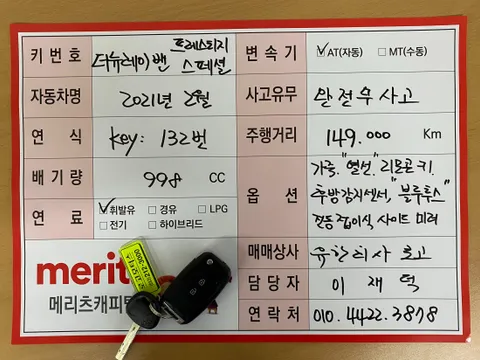 키 번호 더뉴레이밴 프레스티지 스페셜
변속기 ☑AT(자동) □MT(수동)
자동차명 2021년 2월
사고유무 완전무사고
연식 key: 132번
주행거리 149.000 Km
배기량 998 CC
옵션 가죽."열선". 리모콘키.
후방감지센서, "블루투스"
전동접이식 사이드 미러
연료 ☑휘발유 □경유 □LPG
□전기 □하이브리드
매매상사
담당자 이재덕
연락처 010.4422.3878
merit
메리츠캐피탈
212-3500